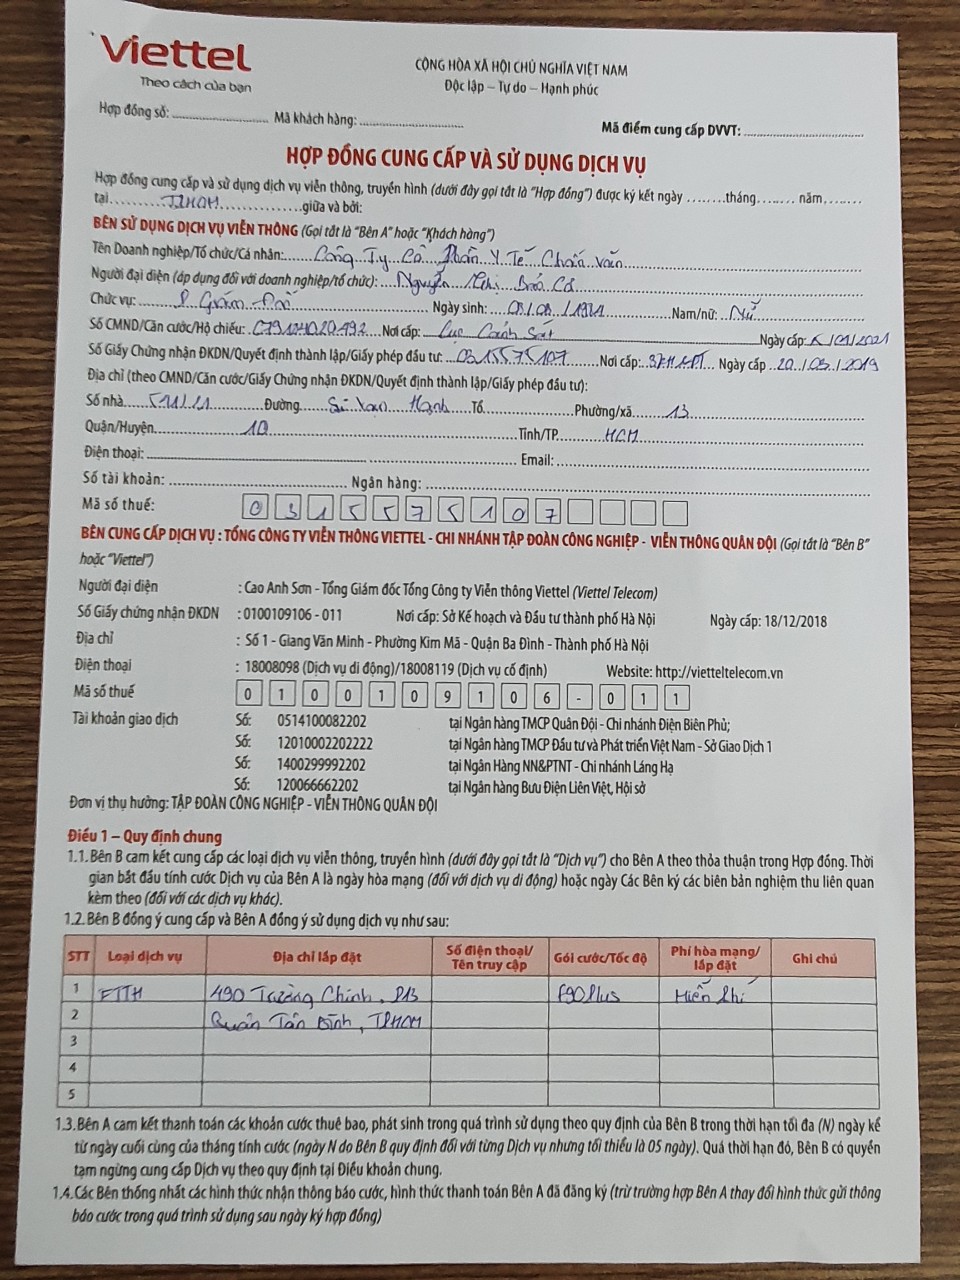 Viettel
Theo cách của bạn
CỘNG HÒA XÃ HỘI CHỦ NGHĨA VIỆT NAM
Độc lập – Tự do – Hạnh phúc
Hợp đồng số: Mã khách hàng:
Mã điểm cung cấp DVVT:
HỢP ĐỒNG CUNG CẤP VÀ SỬ DỤNG DỊCH VỤ
Hợp đồng cung cấp và sử dụng dịch vụ viễn thông, truyền hình (dưới đây gọi tắt là "Hợp đồng") được ký kết ngày ........tháng........ năm........
tại TPHCM giữa và bởi:
BÊN SỬ DỤNG DỊCH VỤ VIỄN THÔNG (Gọi tắt là "Bên A" hoặc "Khách hàng")
Tên Doanh nghiệp/Tổ chức/Cá nhân: Công Ty Cổ Phần Y Tế Chấn Văn
Người đại diện (áp dụng đối với doanh nghiệp/tổ chức): Nguyễn Thị
Chức vụ: P Giám Đốc Ngày sinh: Nam/nữ: Nữ
Số CMND/Căn cước/Hộ chiếu: Nơi cấp: Cục Cảnh Sát Ngày cấp: /01/2021
Số Giấy Chứng nhận ĐKDN/Quyết định thành lập/Giấy phép đầu tư: 0315575107 Nơi cấp: Ngày cấp 20/03/2019
Địa chỉ (theo CMND/Căn cước/Giấy Chứng nhận ĐKDN/Quyết định thành lập/Giấy phép đầu tư):
Số nhà Đường Sư Vạn Hạnh Tổ Phường/xã 13
Quận/Huyện 10 Tỉnh/TP HCM
Điện thoại: Email:
Số tài khoản: Ngân hàng:
Mã số thuế: 0 3 1 5 5 7 5 1 0 7
BÊN CUNG CẤP DỊCH VỤ : TỔNG CÔNG TY VIỄN THÔNG VIETTEL - CHI NHÁNH TẬP ĐOÀN CÔNG NGHIỆP - VIỄN THÔNG QUÂN ĐỘI (Gọi tắt là "Bên B"
hoặc "Viettel")
Người đại diện : Cao Anh Sơn - Tổng Giám đốc Tổng Công ty Viễn thông Viettel (Viettel Telecom)
Số Giấy chứng nhận ĐKDN : 0100109106 - 011 Nơi cấp: Sở Kế hoạch và Đầu tư thành phố Hà Nội Ngày cấp: 18/12/2018
Địa chỉ : Số 1 - Giang Văn Minh - Phường Kim Mã - Quận Ba Đình - Thành phố Hà Nội
Điện thoại : 18008098 (Dịch vụ di động)/18008119 (Dịch vụ cố định) Website: http://vietteltelecom.vn
Mã số thuế 0 1 0 0 1 0 9 1 0 6 - 0 1 1
Tài khoản giao dịch Số: 0514100082202 tại Ngân hàng TMCP Quân Đội - Chi nhánh Điện Biên Phủ;
Số: 12010002202222 tại Ngân hàng TMCP Đầu tư và Phát triển Việt Nam - Sở Giao Dịch 1
Số: 1400299992202 tại Ngân Hàng NN&PTNT - Chi nhánh Láng Hạ
Số: 120066662202 tại Ngân hàng Bưu Điện Liên Việt, Hội sở
Đơn vị thụ hưởng: TẬP ĐOÀN CÔNG NGHIỆP - VIỄN THÔNG QUÂN ĐỘI
Điều 1 – Quy định chung
1.1. Bên B cam kết cung cấp các loại dịch vụ viễn thông, truyền hình (dưới đây gọi tắt là "Dịch vụ") cho Bên A theo thỏa thuận trong Hợp đồng. Thời
gian bắt đầu tính cước Dịch vụ của Bên A là ngày hòa mạng (đối với dịch vụ di động) hoặc ngày Các Bên ký các biên bản nghiệm thu liên quan
kèm theo (đối với các dịch vụ khác).
1.2. Bên B đồng ý cung cấp và Bên A đồng ý sử dụng dịch vụ như sau:
STT Loại dịch vụ Địa chỉ lắp đặt Số điện thoại/ Tên truy cập Gói cước/Tốc độ Phí hòa mạng/ lắp đặt Ghi chú
1 FTTH 490 Trường Chinh, P13 F90Plus Miễn Phí
2 Quận Tân Bình, TPHCM
3
4
5
1.3. Bên A cam kết thanh toán các khoản cước thuê bao, phát sinh trong quá trình sử dụng theo quy định của Bên B trong thời hạn tối đa (N) ngày kể
từ ngày cuối cùng của tháng tính cước (ngày N do Bên B quy định đối với từng Dịch vụ nhưng tối thiểu là 05 ngày). Quá thời hạn đó, Bên B có quyền
tạm ngừng cung cấp Dịch vụ theo quy định tại Điều khoản chung.
1.4. Các Bên thống nhất các hình thức nhận thông báo cước, hình thức thanh toán Bên A đã đăng ký (trừ trường hợp Bên A thay đổi hình thức gửi thông
báo cước trong quá trình sử dụng sau ngày ký hợp đồng)